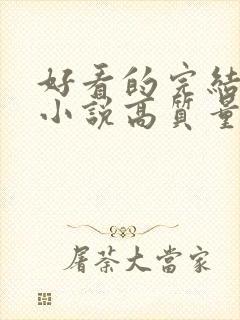 好看的完結
小說高質量
屠荼大當家